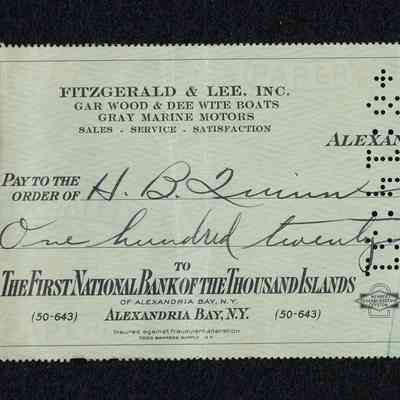 FITZGERALD & LEE, INC.
GAR WOOD & DEE WITE BOATS
GRAY MARINE MOTORS
SALES - SERVICE - SATISFACTION
ALEXAN
PAY TO THE
ORDER OF H. B. Quinn
One hundred twenty
TO
THE FIRST NATIONAL BANK OF THE THOUSAND ISLANDS
OF ALEXANDRIA BAY, N.Y.
(50-643) ALEXANDRIA BAY, N.Y. (50-643)
Insured against fraudulent alteration
TODD BANKERS SUPPLY N.Y.